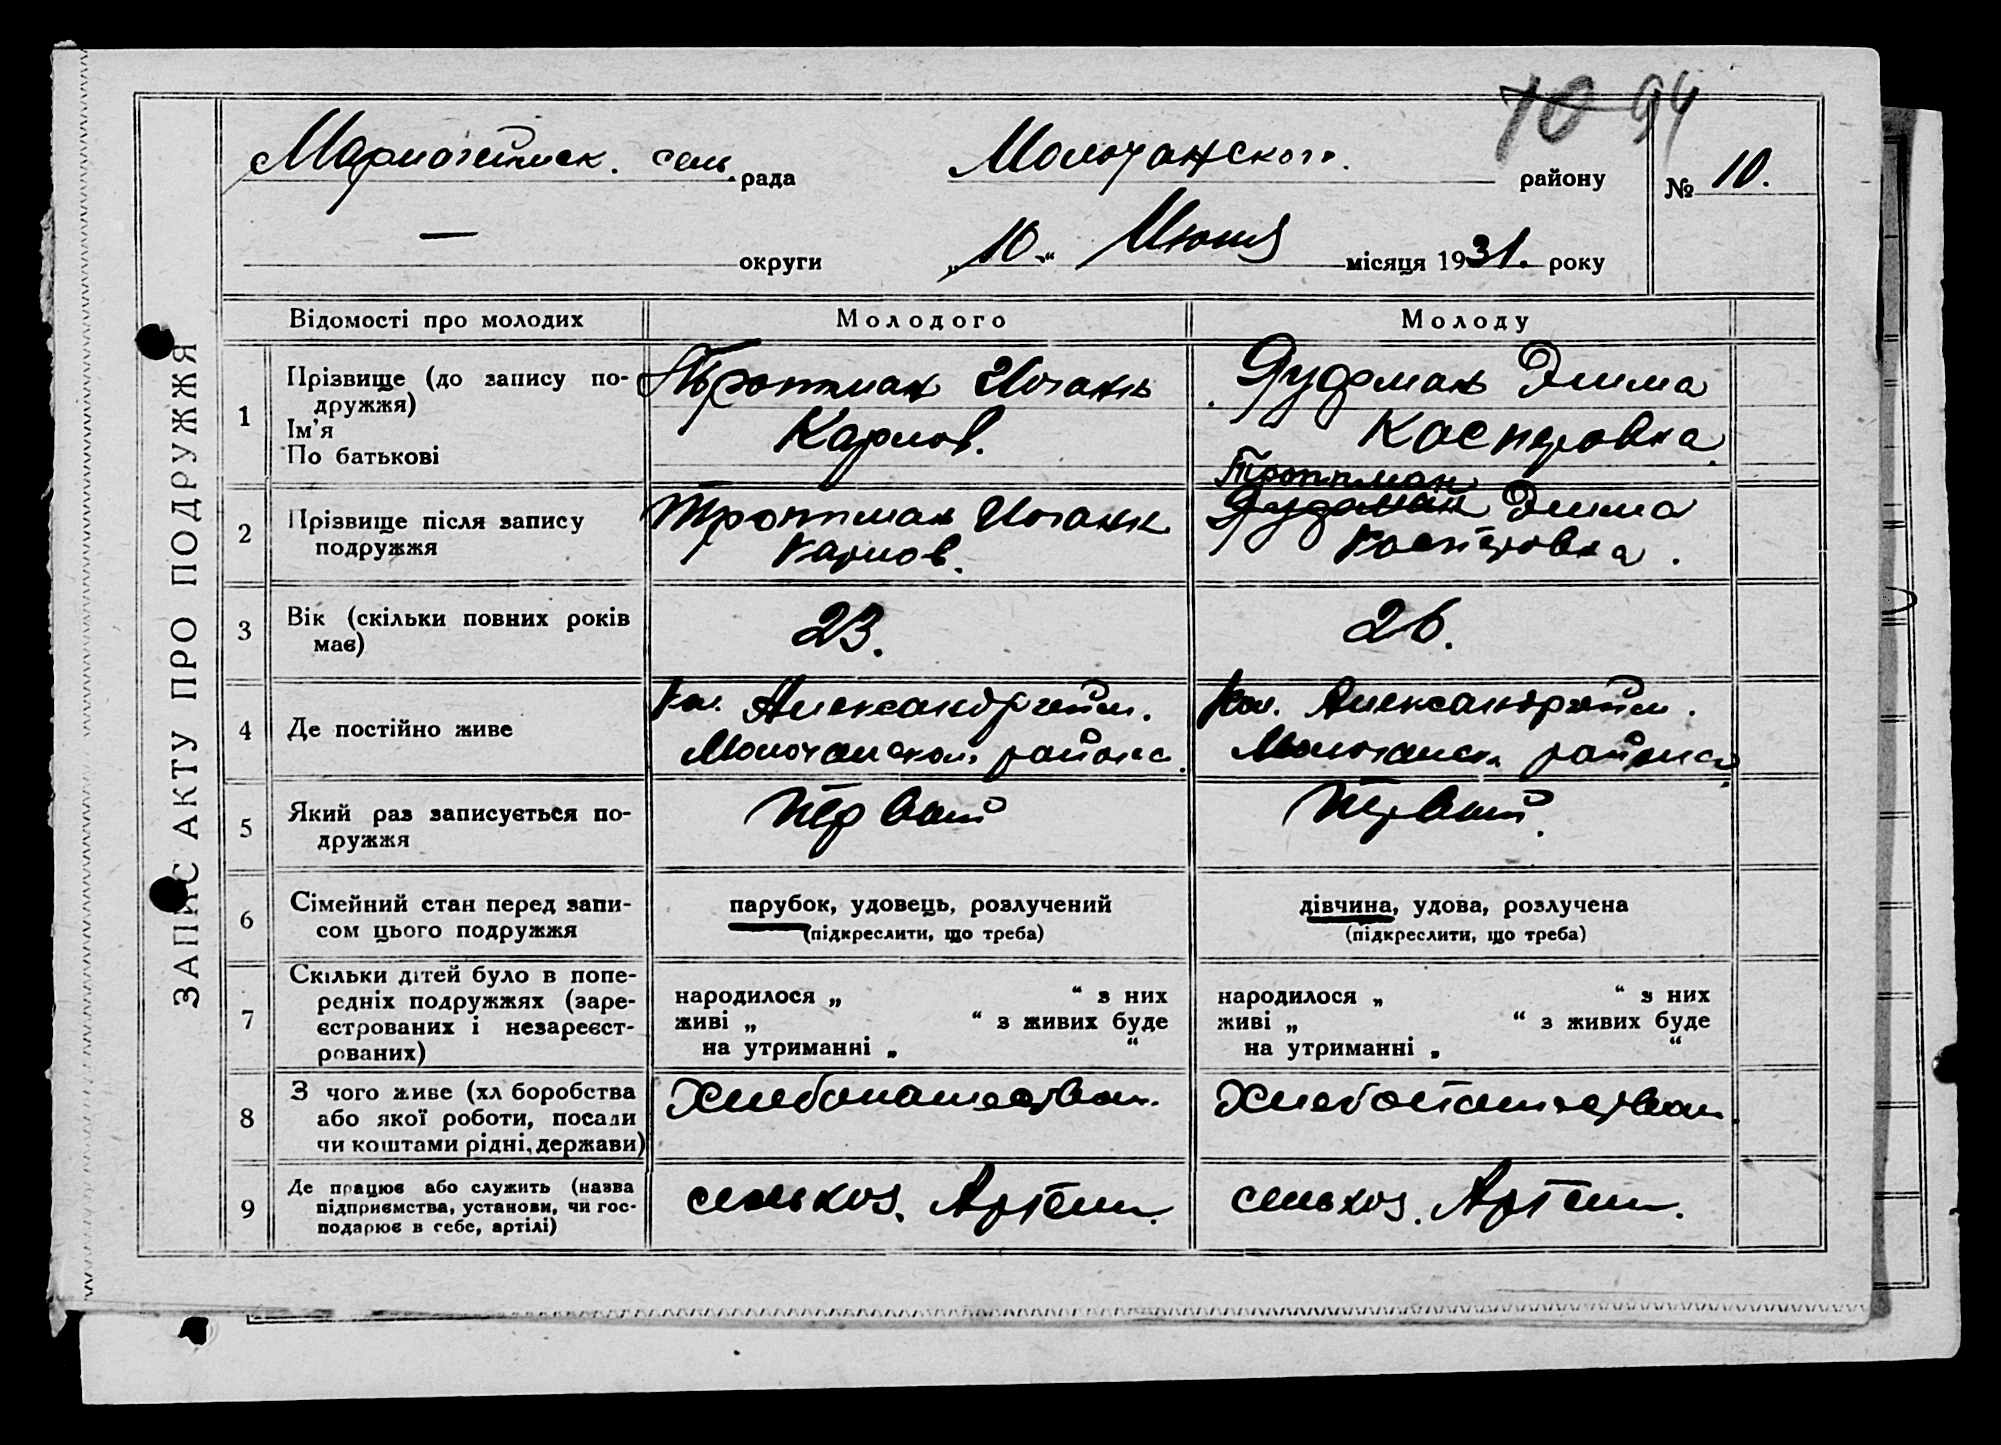 10 94
Мариогеймск. сель. рада
Молочанского. району
№ 10.
— округи
„10.“ Июня місяця 1931. року
ЗАПИС АКТУ ПРО ПОДРУЖЖЯ
Відомості про молодих
Молодого
Молоду
1
Прізвище (до запису по-
дружжя)
Ім'я
По батькові
Троттман Иоганн
Карлов.
Эмма
Касперовна
2
Прізвище після запису
подружжя
Троттман Иоганн
Карлов.
Троттман
Эмма
Касперовна.
3
Вік (скільки повних років
має)
23.
26.
4
Де постійно живе
Кол. Александргейм.
Молочанского района.
Кол. Александргейм.
Молочанск. района
5
Який раз записується по-
дружжя
Первый
Первый.
6
Сімейний стан перед запи-
сом цього подружжя
парубок, удовець, розлучений
(підкреслити, що треба)
дівчина, удова, розлучена
(підкреслити, що треба)
7
Скільки дітей було в попе-
редніх подружжях (заре-
єстрованих і незареєст-
рованих)
народилося „ “ з них
живі „ “ з живих буде
на утриманні „ “
народилося „ “ з них
живі „ “ з живих буде
на утриманні „ “
8
З чого живе (хліборобства
або якої роботи, посади
чи коштами рідні, держави)
Хлебопашеством.
Хлебопашеством.
9
Де працює або служить (назва
підприємства, установи, чи гос-
подарює в себе, артілі)
сельхоз. Артели.
сельхоз. Артели.